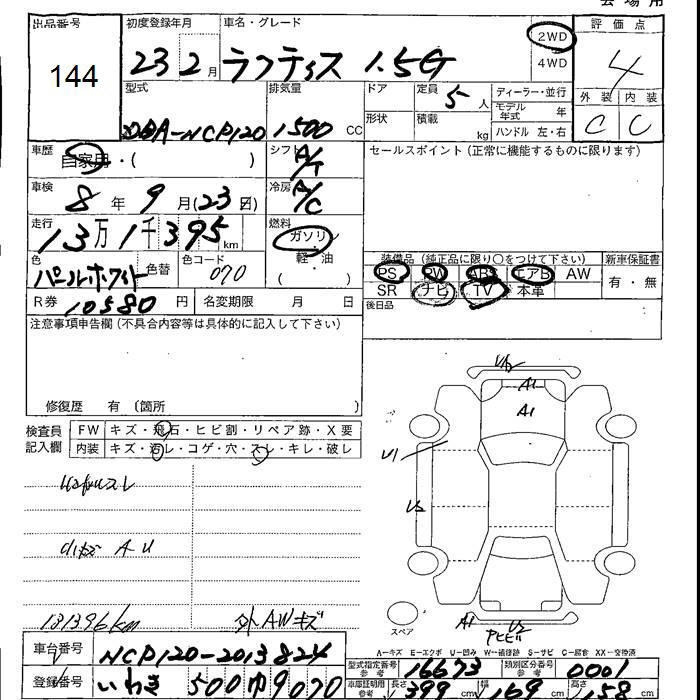 会場用
出品番号 初度登録年月 車名・グレード 評価点
144
23 2月 ラクティス 1.5G 2WD 4WD 4
型式 排気量 ドア 定員 5人 ディーラー・並行 外装 内装
DBA-NCP120 1500 CC 形状 積載 kg モデル年式 年 C C
ハンドル 左・右
車歴 自家用・( ) シフト A/T セールスポイント(正常に機能するものに限ります)
車検 8年 9月(23日) 冷房 A/C
走行 13万1千395km 燃料 ガソリン
軽・油 ( )
色 パールホワイト 色替 色コード 070
装備品(純正品に限り○をつけて下さい) 新車保証書
PS PW ABS エアB AW 有・無
SR ナビ TV 本革
R券 10580円 名変期限 月 日 後日品
注意事項申告欄(不具合内容等は具体的に記入して下さい)
修復歴 有 (箇所 )
検査員記入欄 FW キズ・飛石・ヒビ割・リペア跡・X要
内装 キズ・汚レ・コゲ・穴・スレ・キレ・破レ
A1
A1
U1
A U
131396km 外AWキズ
スペア
A1
A-キズ E-エクボ U-凹み W-補修跡 S-サビ C-腐食 XX-交換済
車台番号 NCP120-2013824 型式指定番号 参考 16673 類別区分番号 参考 0001
登録番号 いわき 500 9070 車庫証明用 参考 長さ 399cm 幅 169cm 高さ 158cm